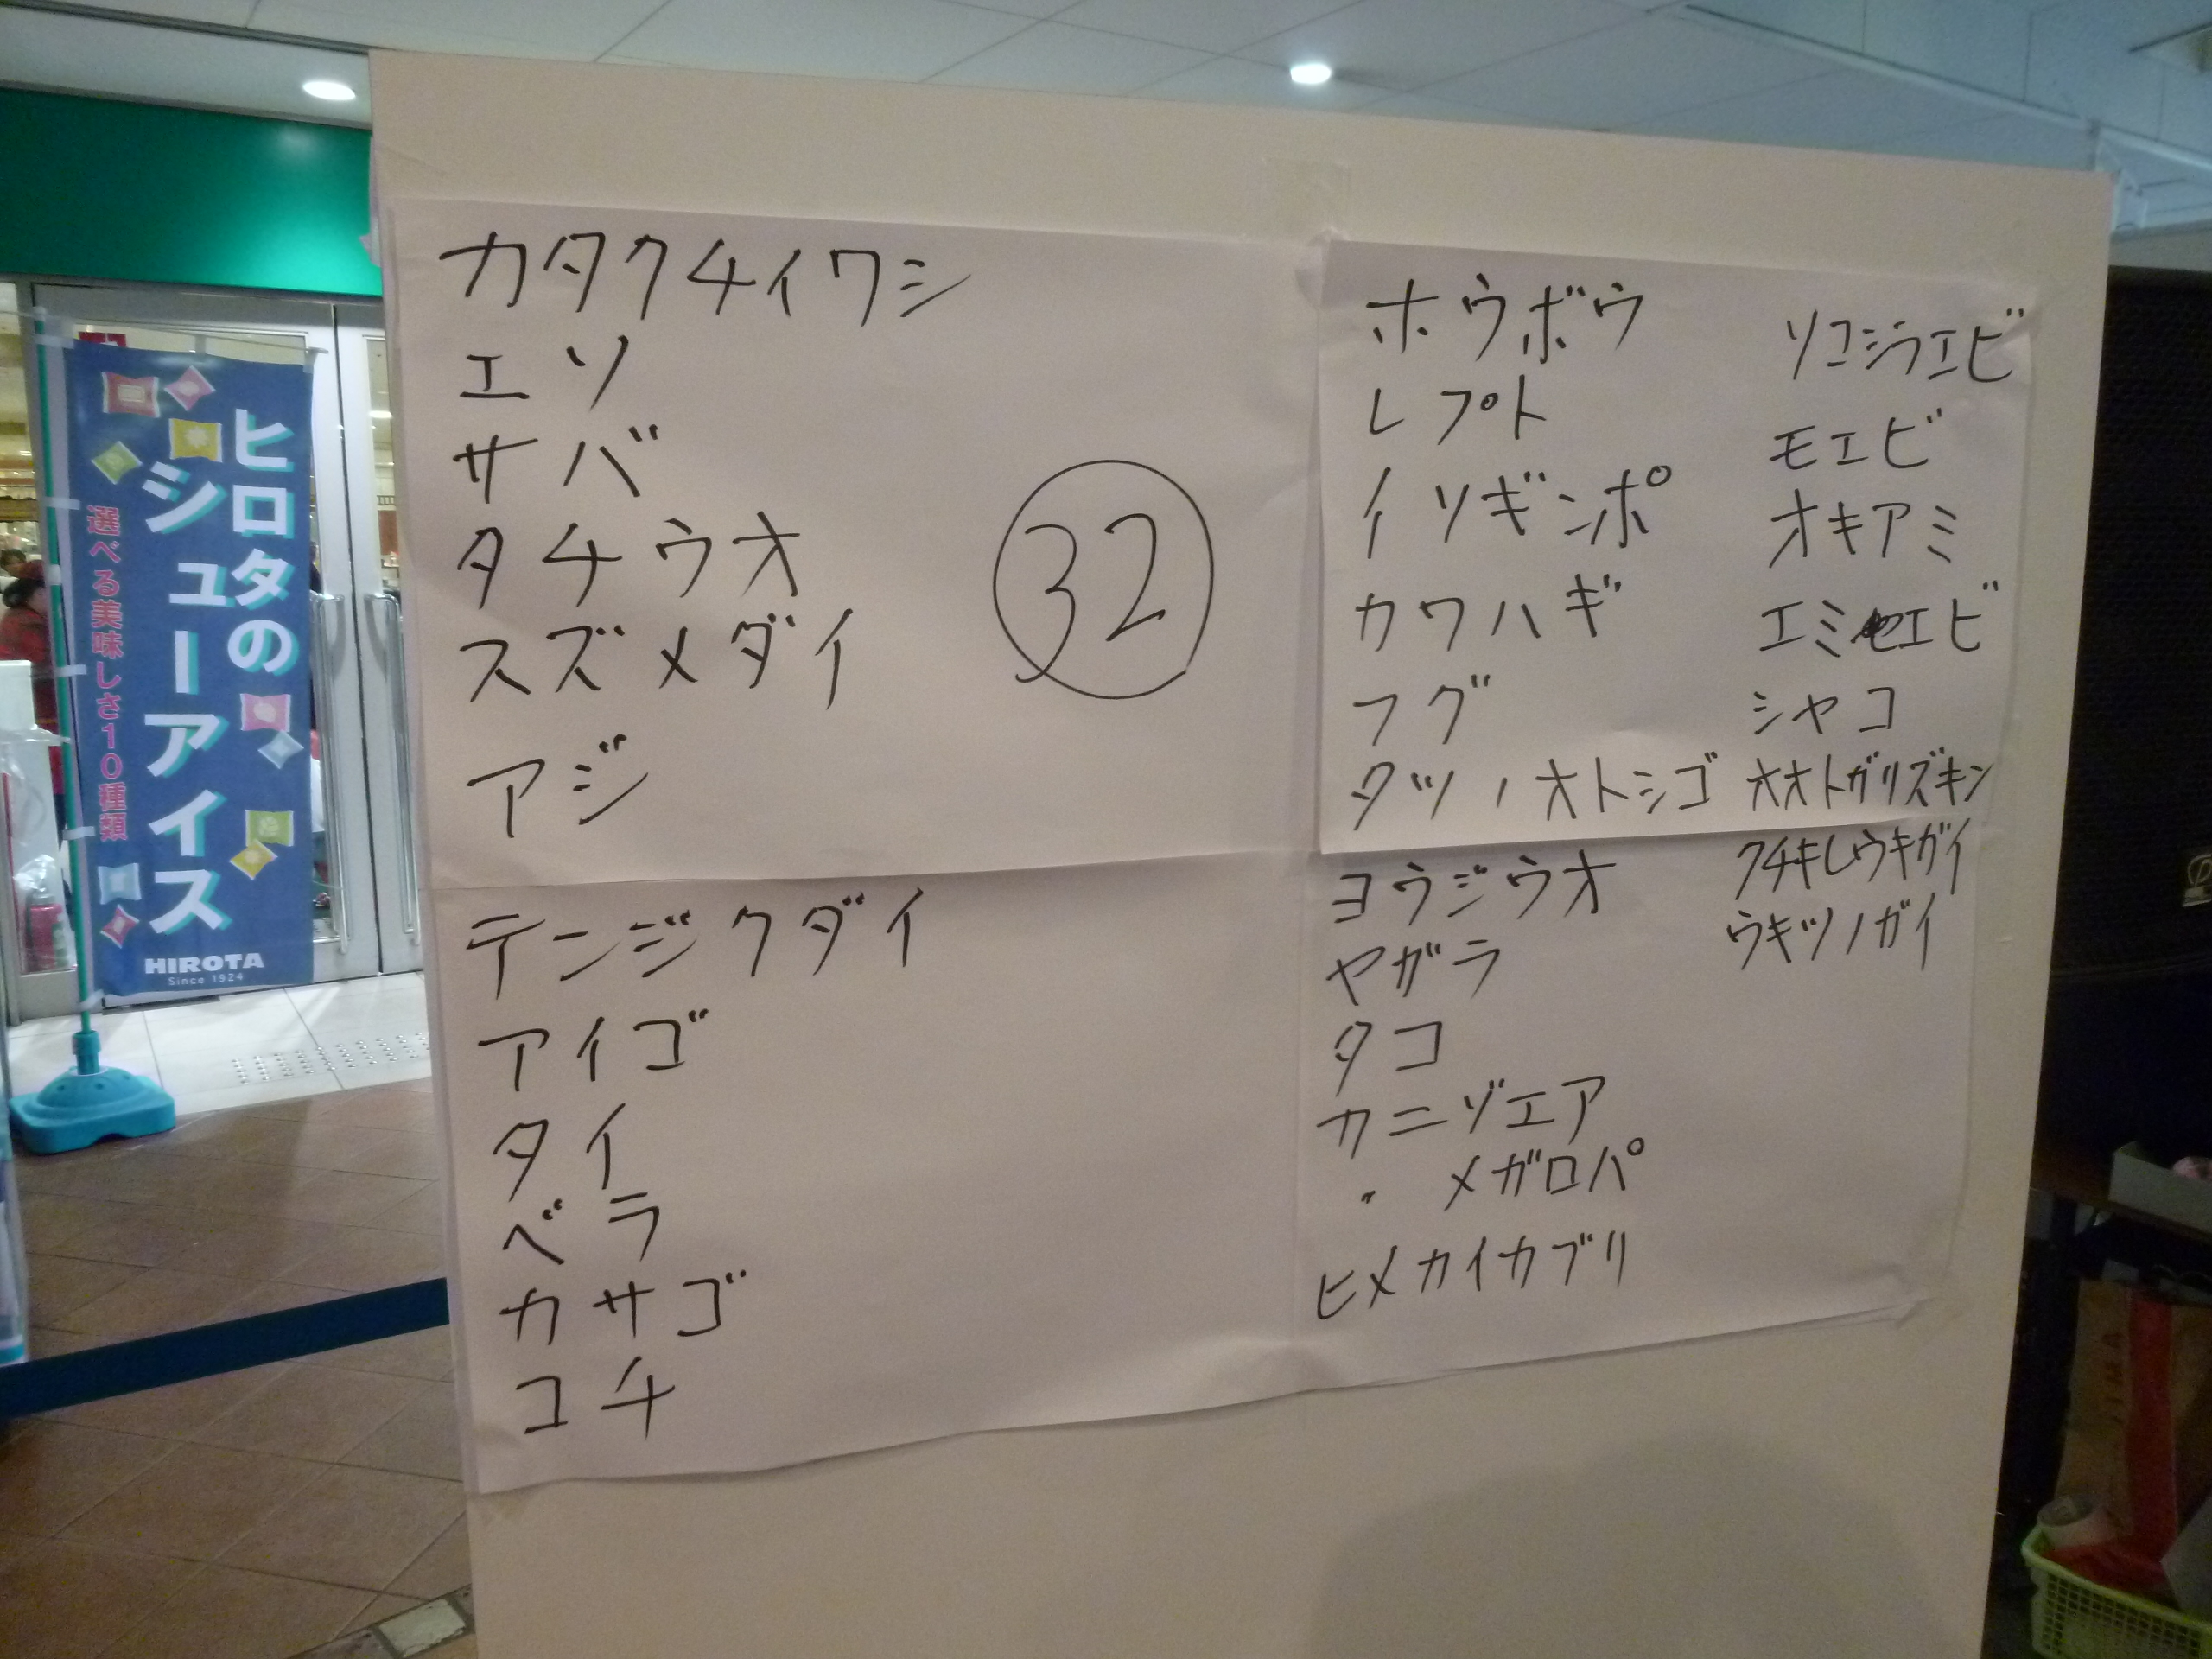 カタクチイワシ
エソ
サバ
タチウオ
スズメダイ
アジ
32
テンジクダイ
アイゴ
タイ
ベラ
カサゴ
コチ
ホウボウ
レプト
イソギンポ
カワハギ
フグ
タツノオトシゴ
ヨウジウオ
ヤガラ
タコ
カニゾエア
〃 メガロパ
ヒメカイカブリ
ソコシラエビ
モエビ
オキアミ
エミエビ
シャコ
オオトガリズキン
クチキレウキガイ
ウキツノガイ
ヒロタの
シューアイス
選べる美味しさ10種類
HIROTA
Since 1924